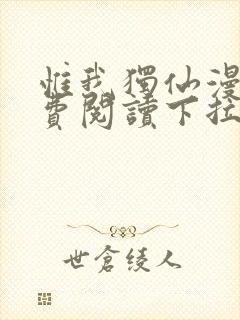 惟我獨仙漫
費閱讀下拉
世倉綾人